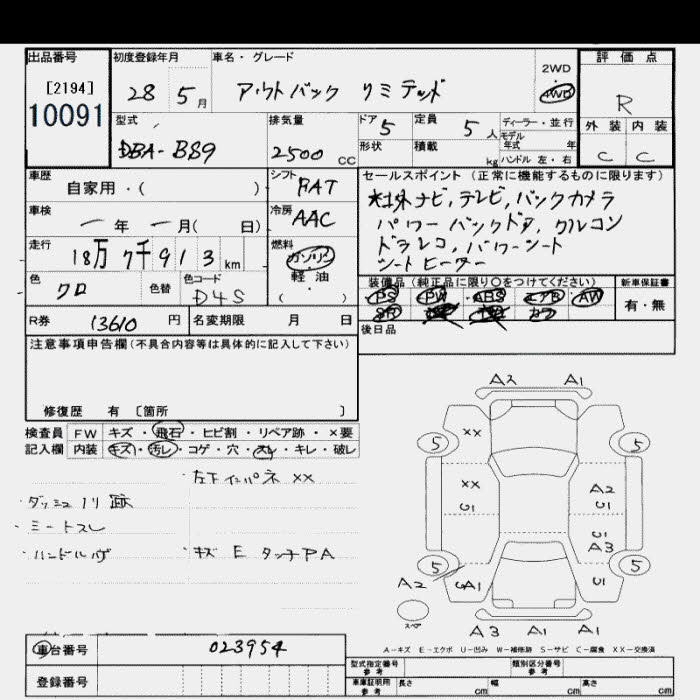 出品番号 初度登録年月 車名・グレード 評価点
[2194] 28 5月 アウトバック リミテッド 2WD 4WD R
10091
型式 排気量 ドア 5 定員 5人 ディーラー・並行 外装 内装
DBA-BS9 2500cc 形状 積載 kg モデル年式 年 ハンドル 左・右 C C
車歴 自家用・( ) シフト FAT セールスポイント (正常に機能するものに限ります)
車検 年 月( 日) 冷房 AAC
社外ナビ, テレビ, バックカメラ
パワーバックドア, クルコン
ドラレコ, パワーシート
シートヒーター
走行 18万7千913km 燃料 ガソリン 軽油 ( )
色 クロ 色替 色コード D4S
装備品 (純正品に限り〇をつけてください) 新車保証書
PS PW ABS エアB AW 有・無
SR
R券 13610円 名変期限 月 日 後日品
注意事項申告欄 (不具合内容等は具体的に記入して下さい)
修復歴 有 〔箇所 〕
検査員 FW キズ・飛石・ヒビ割・リペア跡・×要
記入欄 内装 キズ・汚レ・コゲ・穴・スレ・キレ・破レ
・左下インパネ XX
・ダッシュノリ跡
・ミートスレ
・ハンドルハゲ ・キズ E タッチPA
A2 A1
XX 5 5
XX U1 A2
U1 A3
5 5
A2 A1 U1
スペア
A3 A1 A1
A-キズ E-エクボ U-凹み W-補修跡 S-サビ C-腐食 XX-交換済
車台番号 023954
登録番号
型式指定番号 参考 類別区分番号 参考
車庫証明用 参考 長さ cm 幅 cm 高さ cm